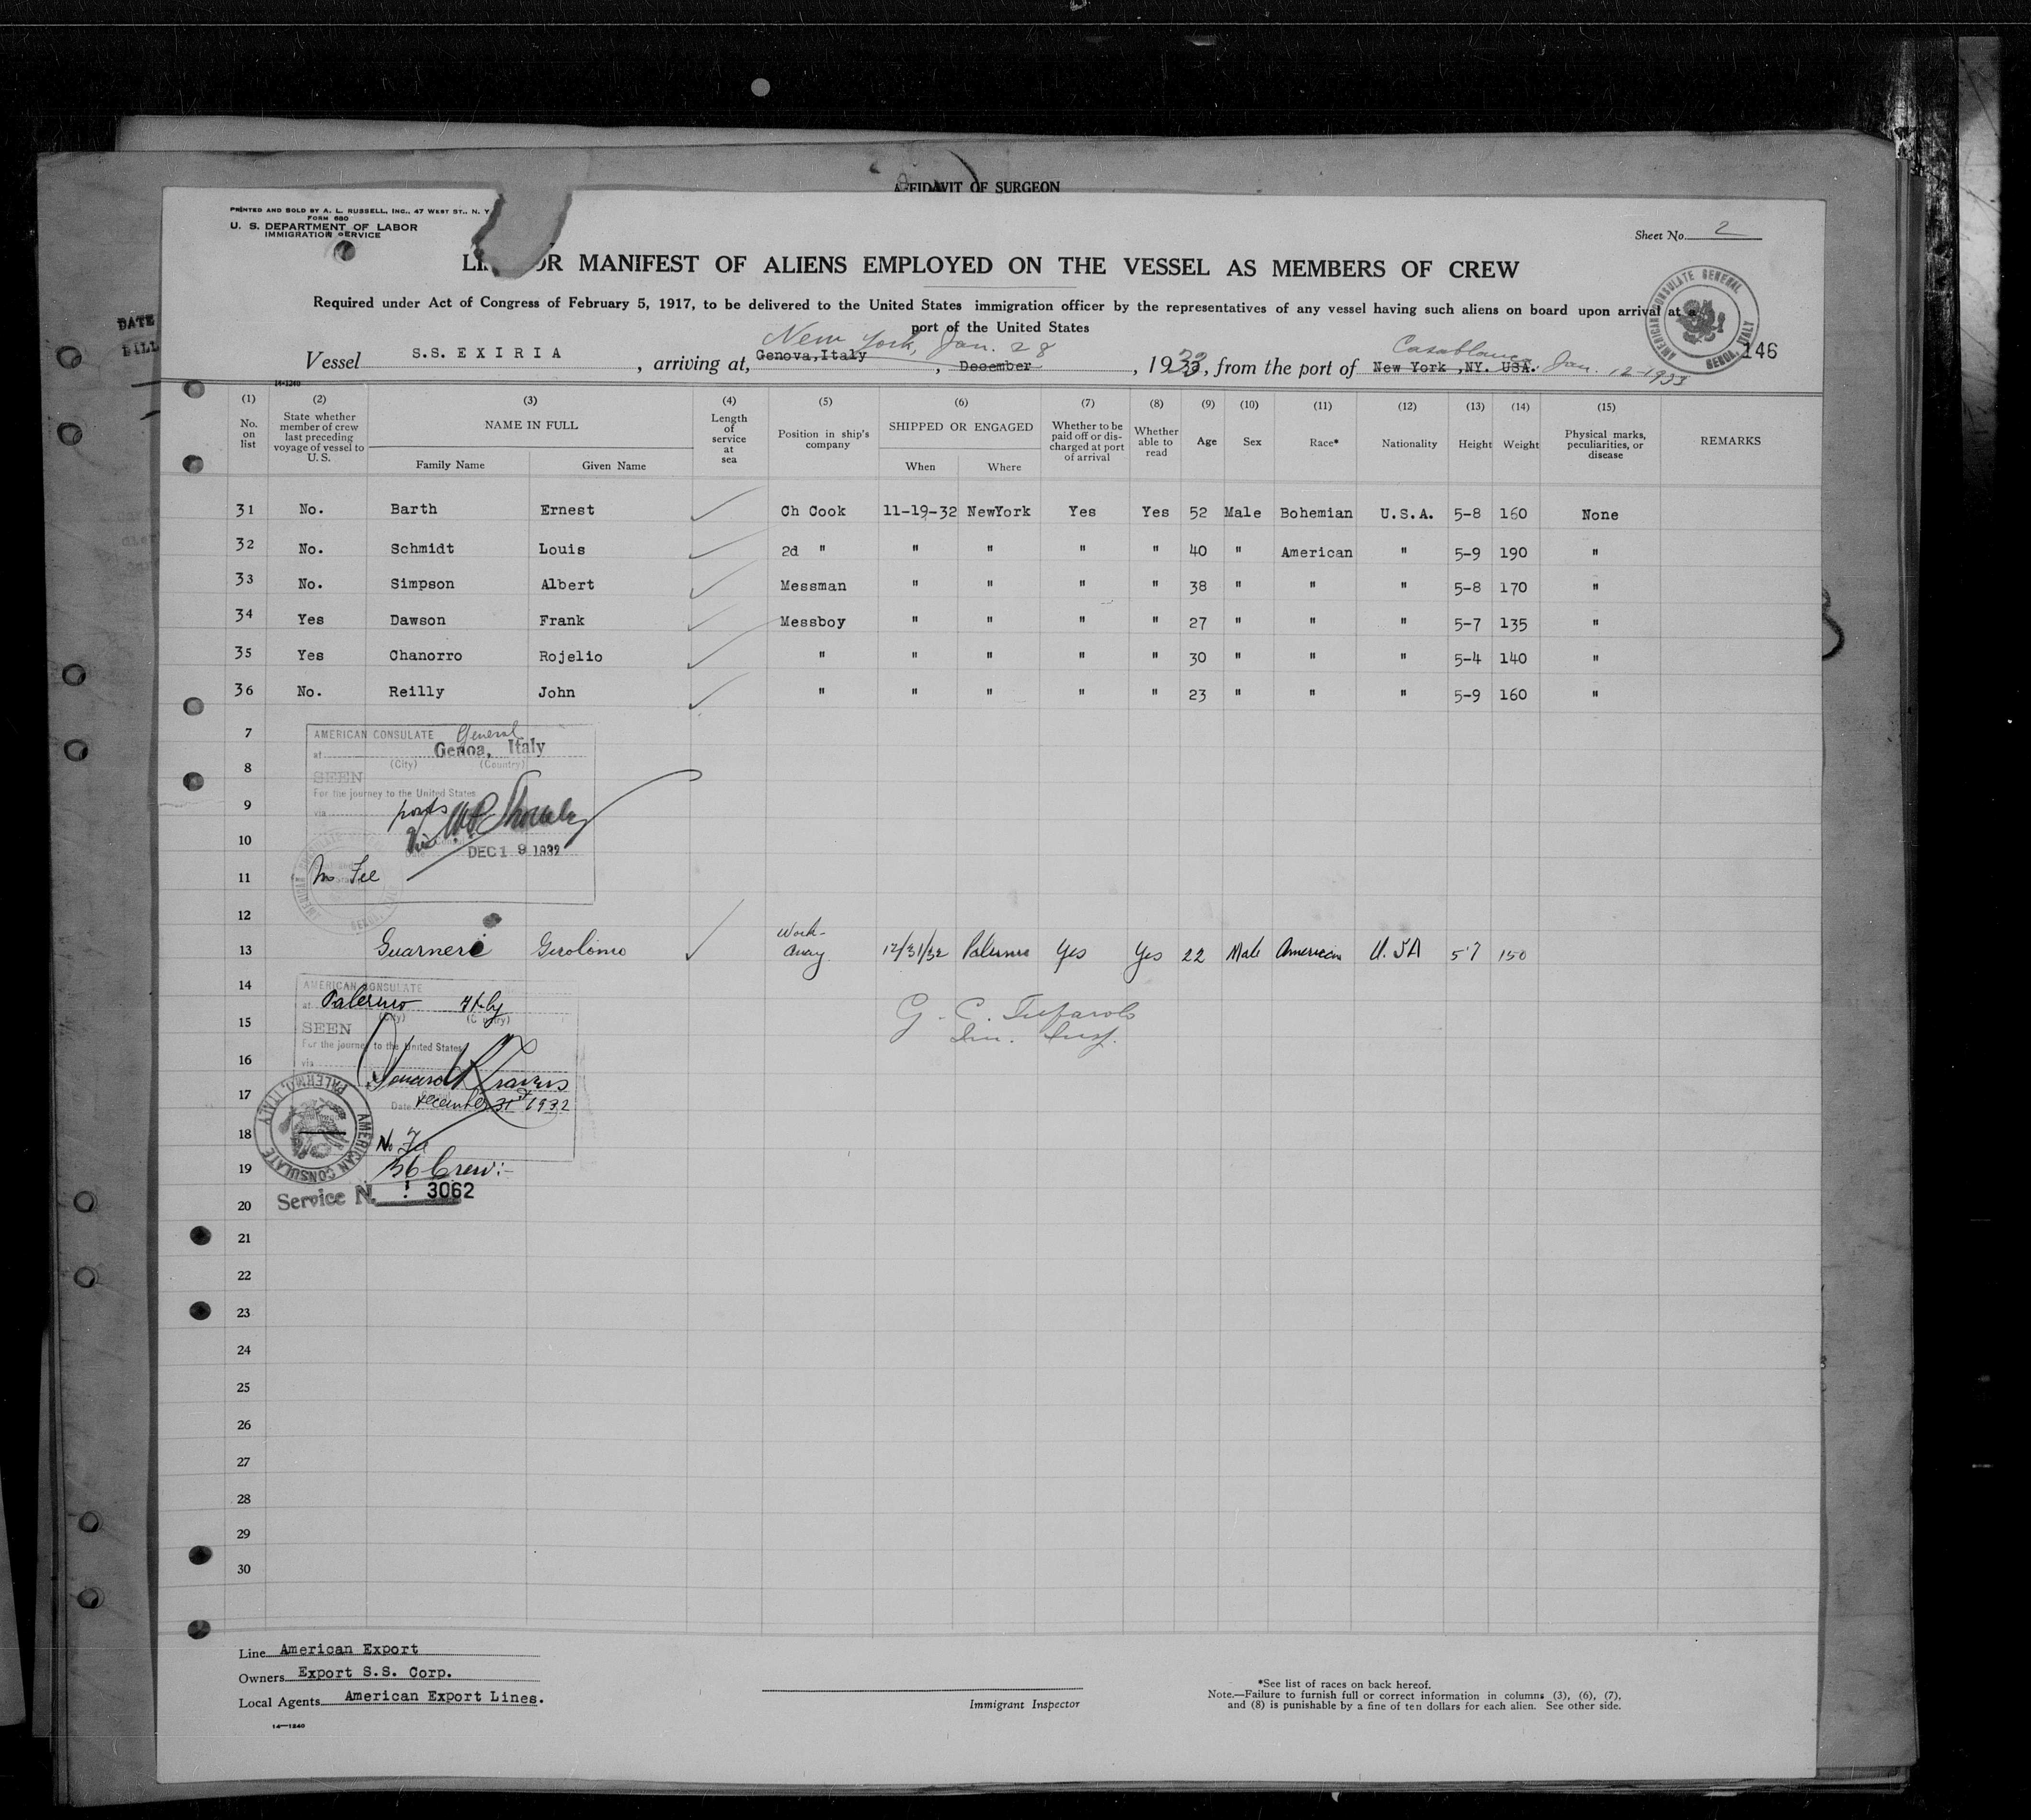 AFFIDAVIT OF SURGEON
PRINTED AND SOLD BY A. L. RUSSELL, INC., 47 WEST ST., N. Y
FORM 680
U. S. DEPARTMENT OF LABOR
IMMIGRATION SERVICE
Sheet No. 2
OR MANIFEST OF ALIENS EMPLOYED ON THE VESSEL AS MEMBERS OF CREW
Required under Act of Congress of February 5, 1917, to be delivered to the United States immigration officer by the representatives of any vessel having such aliens on board upon arrival at a
port of the United States
AMERICAN CONSULATE GENERAL
GENOA, ITALY
146
New York, Jan. 28
Casablanca Jan. 12-1933
Vessel S.S. EXIRIA, arriving at, Genova,Italy, December, 1933, from the port of New York ,NY. USA.
14-1240
(1) (2) (3) (4) (5) (6) (7) (8) (9) (10) (11) (12) (13) (14) (15)
No. on list
State whether member of crew last preceding voyage of vessel to U. S.
NAME IN FULL
Family Name Given Name
Length of service at sea
Position in ship's company
SHIPPED OR ENGAGED
When Where
Whether to be paid off or discharged at port of arrival
Whether able to read
Age Sex Race* Nationality Height Weight
Physical marks, peculiarities, or disease
REMARKS
31 No. Barth Ernest Ch Cook 11-19-32 NewYork Yes Yes 52 Male Bohemian U.S.A. 5-8 160 None
32 No. Schmidt Louis 2d " " " " " 40 " American " 5-9 190 "
33 No. Simpson Albert Messman " " " " 38 " " " 5-8 170 "
34 Yes Dawson Frank Messboy " " " " 27 " " " 5-7 135 "
35 Yes Chanorro Rojelio " " " " " 30 " " " 5-4 140 "
36 No. Reilly John " " " " " 23 " " " 5-9 160 "
7
AMERICAN CONSULATE General
at Genoa, Italy
(City) (Country)
8
SEEN
For the journey to the United States
9
via ports
10
DEC 19 1932
11
No Fee
12
13 Guarneri Girolimo Work-away 12/31/32 Palermo Yes Yes 22 Male American U.SA 5'7 150
14
AMERICAN CONSULATE
at Palermo Italy
(City) (Country)
15
SEEN
G. C. Tufarolo
Im. Insp.
For the journey to the United States
16
via
Howard K. Travers
17
Date December 31st 1932
AMERICAN CONSULATE PALERMO, ITALY
18
No Fee
19
36 Crew:-
Service No. 3062
20
21
22
23
24
25
26
27
28
29
30
Line American Export
Owners Export S.S. Corp.
Local Agents American Export Lines.
14—1240
Immigrant Inspector
*See list of races on back hereof.
Note.—Failure to furnish full or correct information in columns (3), (6), (7),
and (8) is punishable by a fine of ten dollars for each alien. See other side.